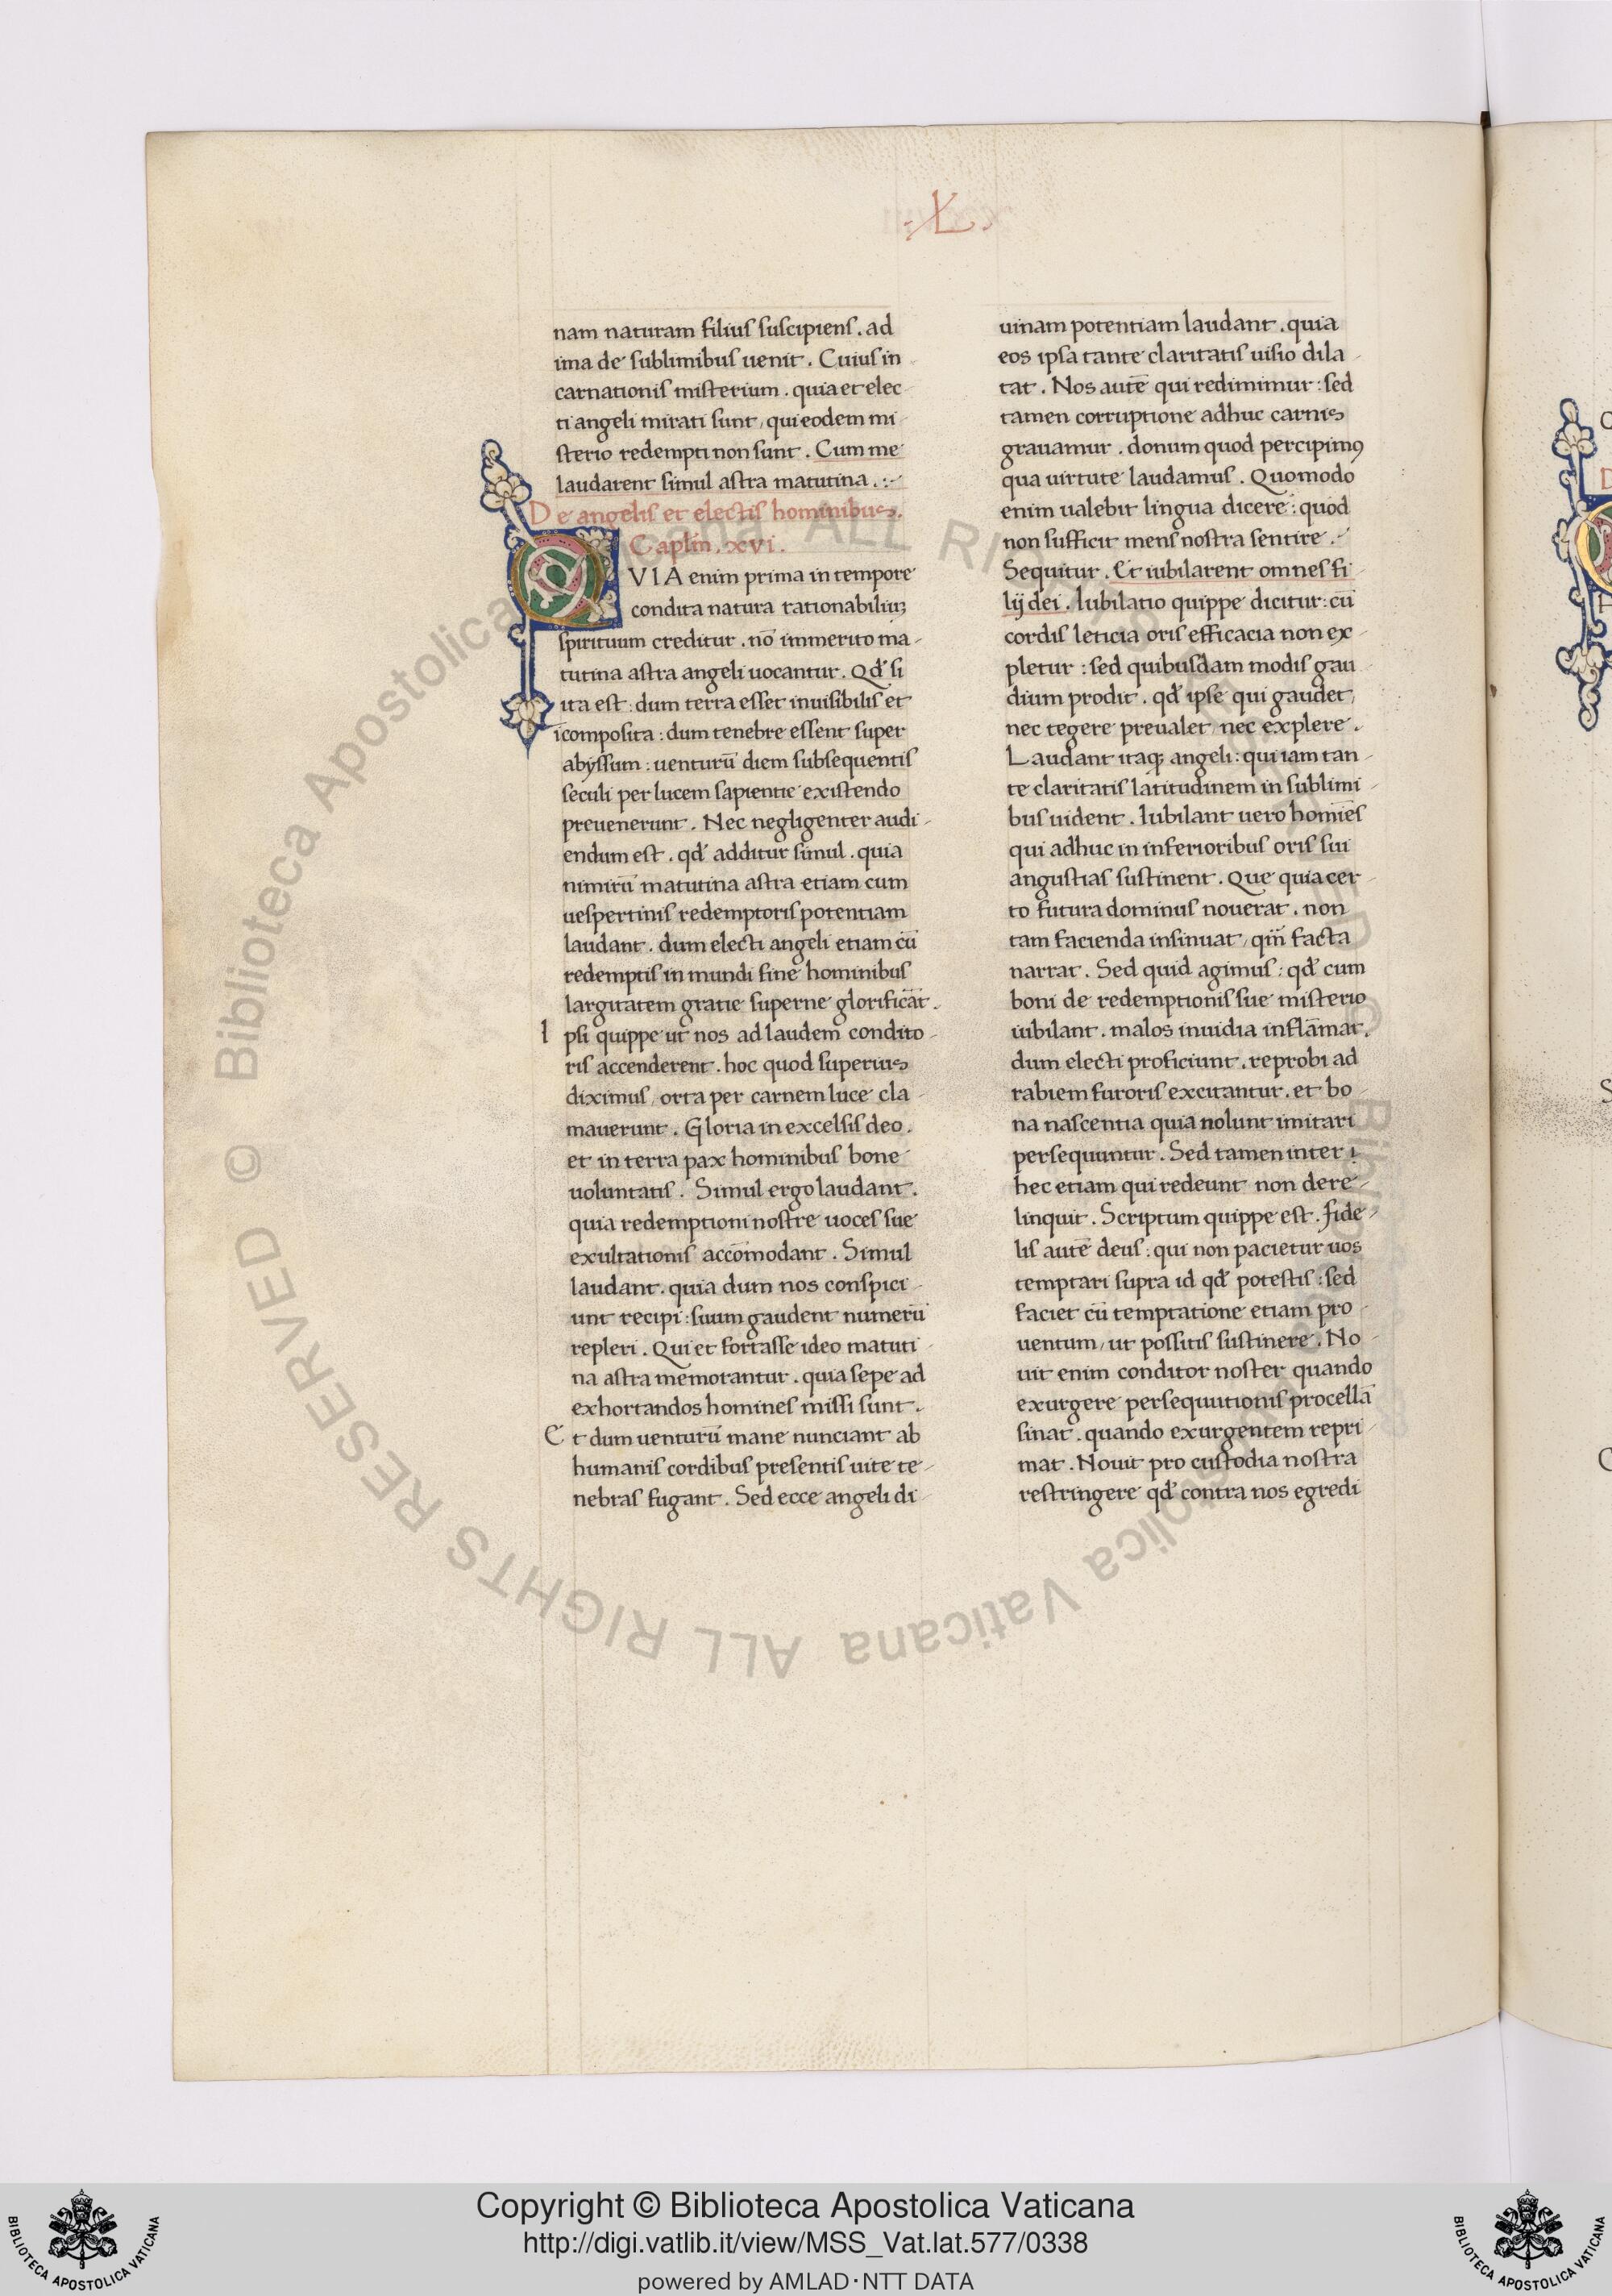 .L.
nam naturam filius suscipiens . ad
ima de sublimibus uenit . Cuius in
carnationis misterium . quia et elec
ti angeli mirati sunt, qui eodem mi
sterio redempti non sunt . Cum me
laudarent simul astra matutina .:-
De angelis et electis hominibus.
Caplm̄. xvi.
QVIA enim prima in tempore
condita natura rationabiliuꝫ
spirituum creditur . nō immerito ma-
tutina astra angeli uocantur . Qđ si
ita est : dum terra esset inuisibilis et
īcomposita : dum tenebre essent super
abyssum : uenturū diem subsequentis
seculi per lucem sapientie existendo
preuenerunt . Nec negligenter audi-
endum est . qđ additur simul . quia
nimirū matutina astra etiam cum
uespertinis redemptoris potentiam
laudant . dum electi angeli etiam cū
redemptis in mundi fine hominibus
largitatem gratie superne glorificāt .
Ipsi quippe ut nos ad laudem condito-
ris accenderent . hoc quod superius
diximus, orta per carnem luce cla-
mauerunt . Gloria in excelsis deo .
et in terra pax hominibus bone
uoluntatis . Simul ergo laudant .
quia redemptioni nostre uoces sue
exultationis accōmodant . Simul
laudant . quia dum nos conspici-
unt recipi : suum gaudent numerū
repleri . Qui et fortasse ideo matuti-
na astra memorantur . quia sepe ad
exhortandos homines missi sunt .
Et dum uenturū mane nunciant ab
humanis cordibus presentis uite te-
nebras fugant . Sed ecce angeli di-
uinam potentiam laudant . quia
eos ipsa tante claritatis uisio dila-
tat . Nos autē qui redimimur : sed
tamen corruptione adhuc carnis
grauamur . donum quod percipimꝰ
qua uirtute laudamus . Quomodo
enim ualebit lingua dicere : quod
non sufficit mens nostra sentire .
Sequitur . Et iubilarent omnes fi-
lij dei . Iubilatio quippe dicitur : cū
cordis leticia oris efficacia non ex-
pletur : sed quibusdam modis gau-
dium prodit . qđ ipse qui gaudet,
nec tegere preualet nec explere .
Laudant itaqꝫ angeli : qui iam tan-
te claritatis latitudinem in sublimi-
bus uident . Iubilant uero homīes
qui adhuc in inferioribus oris sui
angustias sustinent . Que quia cer-
to futura dominus nouerat . non
tam facienda insinuat, qm̄ facta
narrat . Sed quid agimus : qđ cum
boni de redemptionis sue misterio
iubilant . malos inuidia inflāmat .
dum electi proficiunt . reprobi ad
rabiem furoris excitantur . et bo-
na nascentia quia nolunt imitari
persequuntur . Sed tamen inter
hec etiam qui redeunt non dere-
linquit . Scriptum quippe est . fide-
lis autē deus : qui non pacietur uos
temptari supra id qđ potestis : sed
faciet cū temptatione etiam pro-
uentum, ut possitis sustinere . No-
uit enim conditor noster quando
exurgere persequutionis procellā
sinat . quando exurgentem repri-
mat . Nouit pro custodia nostra
restringere qđ contra nos egredi
© Biblioteca Apostolica Vaticana ALL RIGHTS RESERVED
Copyright © Biblioteca Apostolica Vaticana
http://digi.vatlib.it/view/MSS_Vat.lat.577/0338
powered by AMLAD·NTT DATA
BIBLIOTECA APOSTOLICA VATICANA
BIBLIOTECA APOSTOLICA VATICANA